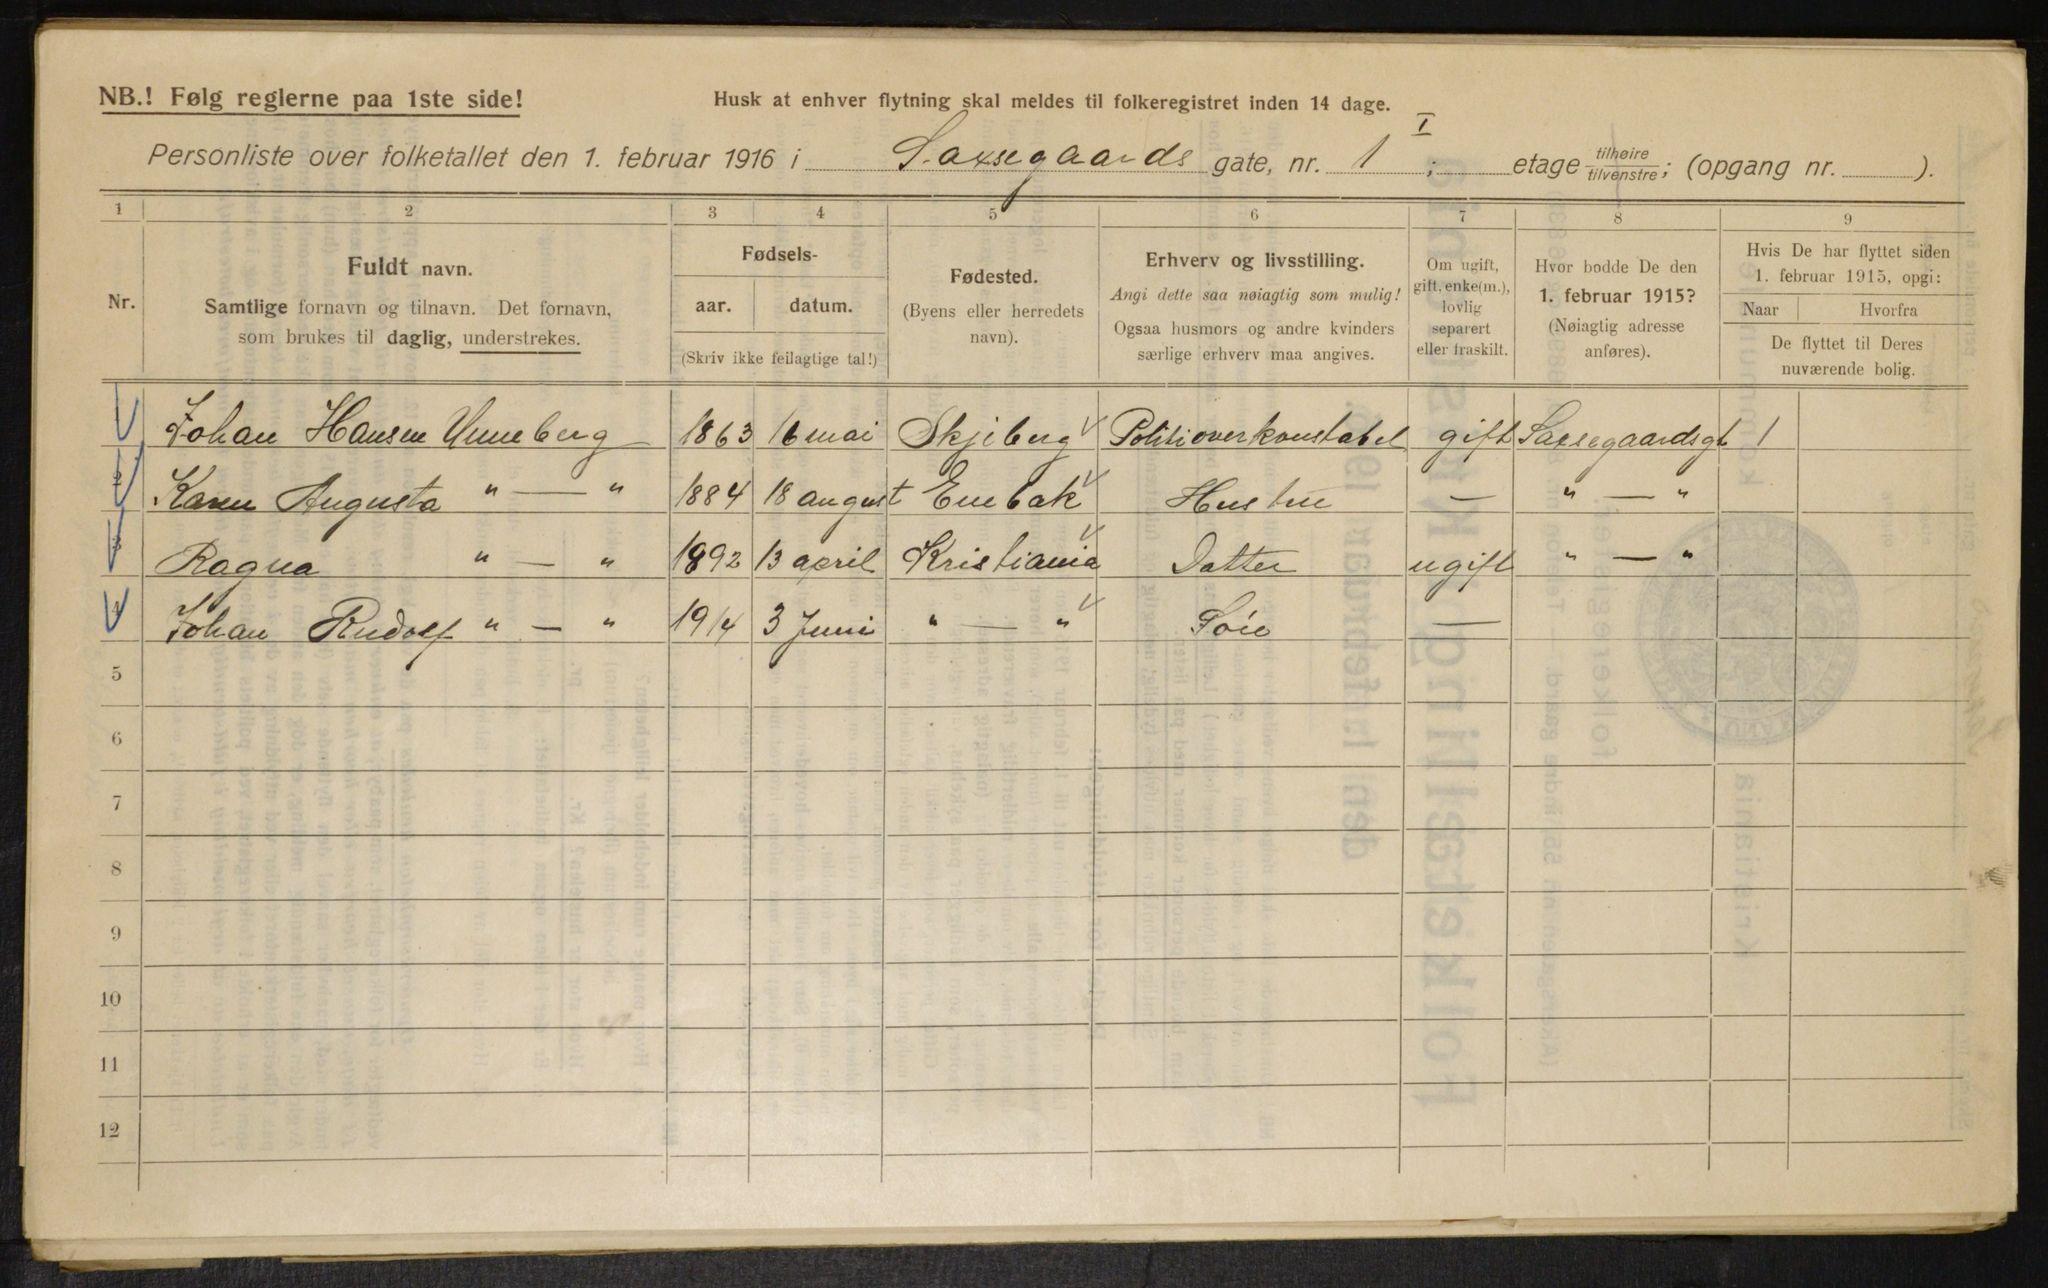 NB.! Følg reglerne paa 1ste side!
Husk at enhver flytning skal meldes til folkeregistret inden 14 dage.
Personliste over folketallet den 1. februar 1916 i Saxsegaards gate, nr. 1 I ; etage tilhøire/tilvenstre; (opgang nr. ).
1 2 3 4 5 6 7 8 9
Nr.
Fuldt navn.
Samtlige fornavn og tilnavn. Det fornavn,
som brukes til daglig, understrekes.
Fødsels-
aar. datum.
(Skriv ikke feilagtige tal!)
Fødested.
(Byens eller herredets
navn).
Erhverv og livsstilling.
Angi dette saa nøiagtig som mulig!
Ogsaa husmors og andre kvinders
særlige erhverv maa angives.
Om ugift,
gift, enke(m.),
lovlig
separert
eller fraskilt.
Hvor bodde De den
1. februar 1915?
(Nøiagtig adresse
anføres).
Hvis De har flyttet siden
1. februar 1915, opgi:
Naar Hvorfra
De flyttet til Deres
nuværende bolig.
Johan Hansen Unneberg 1863 16 mai Skjeberg Politioverkonstabel gift Saxsegaardsgt 1
2 Karen Augusta " — " 1884 18 august Enebak Hustru — " — "
3 Ragna " — " 1892 13 april Kristiania Datter ugift " — "
4 Johan Rudolf " — " 1914 3 Juni " — " Søn —
5
6
7
8
9
10
11
12